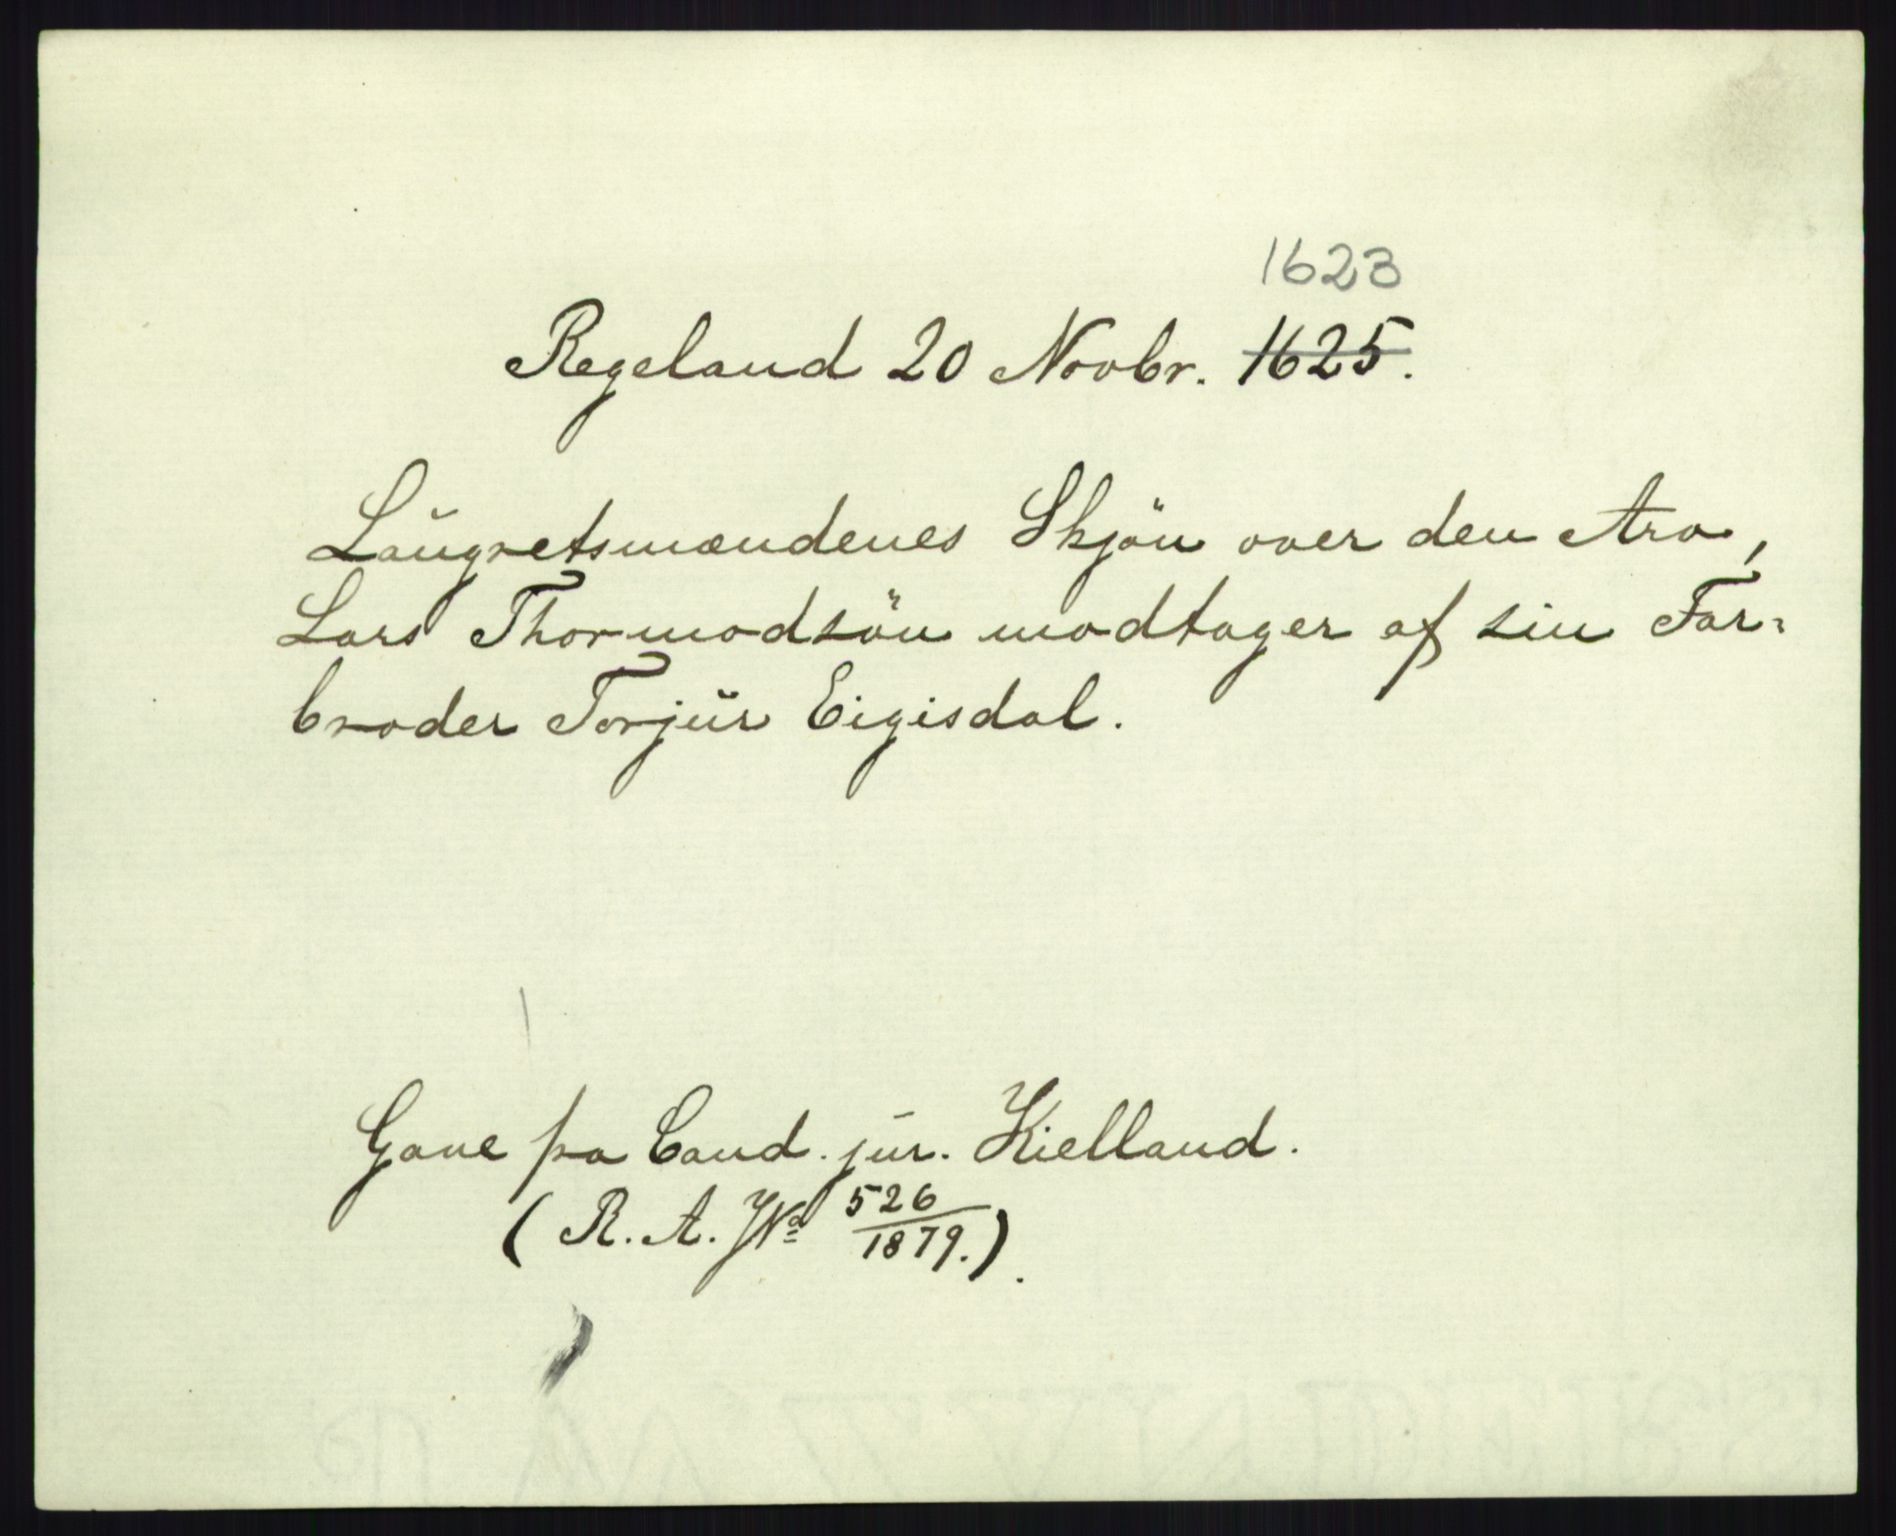 1623
Regeland 20 Novbr. 1625.
Laugretsmændenes Skjön over den Arv,
Lars Thormodsön modtager af sin Far-
broder Torjus Eigisdal.
Gave fra Cand. jur. Kielland.
(R. A. No 526/1879.).